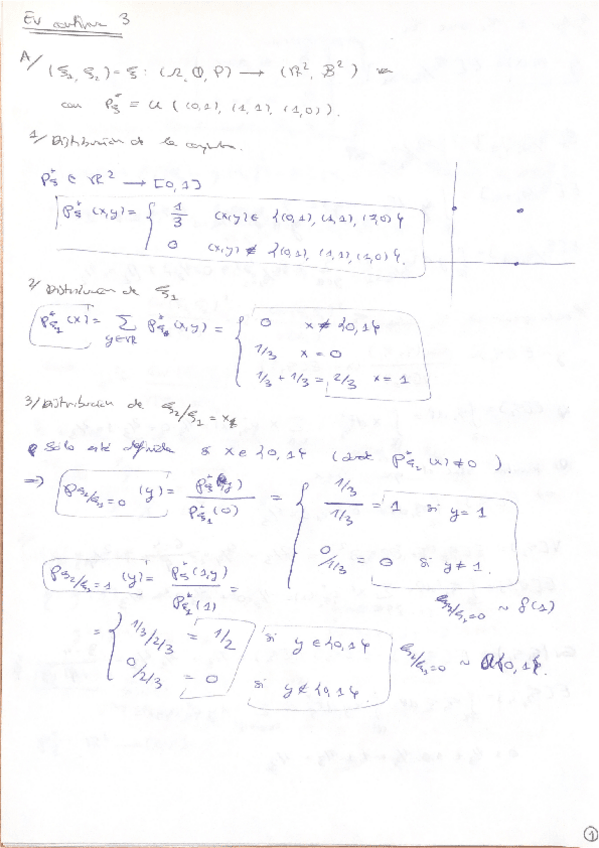 Ev continua 3
A/ (ξ₁, ξ₂) = ξ : (Ω, Q, P) → (ℝ², B²) va
con P*ξ = U ( (0,1), (1,1), (1,0) ).
1/ Distribución de la conjunta.
P*ξ ∈ ℝ² → [0,1]
P*ξ (x,y) = { 1/3 (x,y) ∈ {(0,1), (1,1), (1,0)}
0 (x,y) ∉ {(0,1), (1,1), (1,0)}.
2/ Distribución de ξ₁
P*ξ₁ (x) = Σ y∈ℝ P*ξ (x,y) = { 0 x ∉ {0,1}
1/3 x = 0
1/3 + 1/3 = 2/3 x = 1
3/ Distribución de ξ₂/ξ₁ = x
Solo está definida si x ∈ {0,1} (donde P*ξ₁ (x) ≠ 0).
⇒ Pξ₂/ξ₁=0 (y) = P*ξ (0,y) / P*ξ₁ (0) = { 1/3 / 1/3 = 1 si y = 1
0/1/3 = 0 si y ≠ 1.
Pξ₂/ξ₁=1 (y) = P*ξ (1,y) / P*ξ₁ (1) =
ξ₂/ξ₁=0 ~ δ(1)
= { 1/3/2/3 = 1/2 si y ∈ {0,1}
0/2/3 = 0 si y ∉ {0,1}
ξ₂/ξ₁=0 ~ U{0,1}.
1